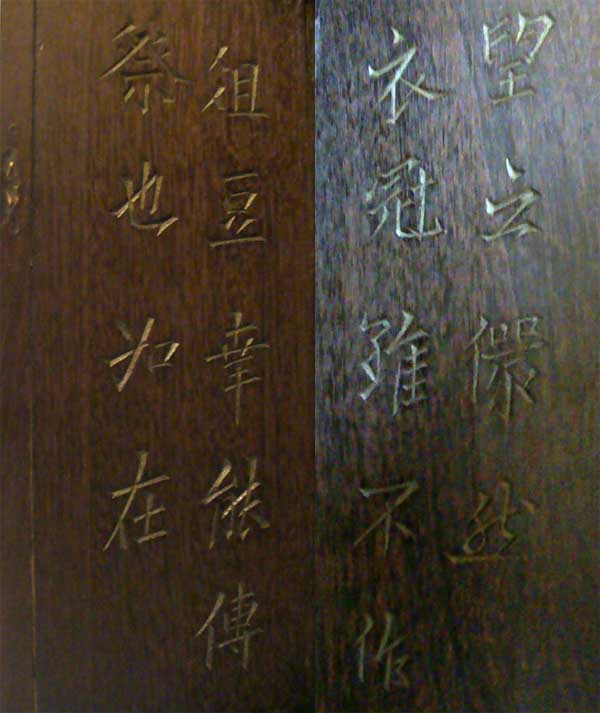 望之儼然
衣冠雖不作
俎豆幸能傳
祭也如在